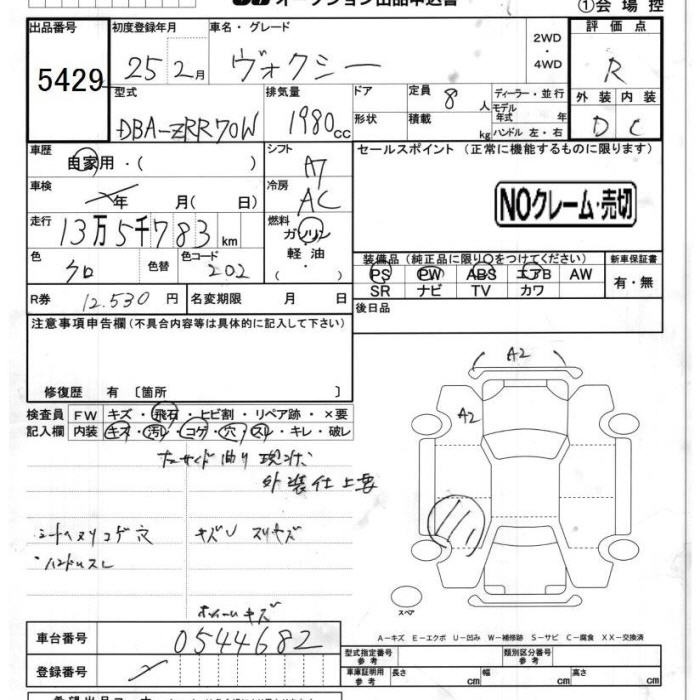 オークション出品申込書
①会場控
出品番号 初度登録年月 車名・グレード 2WD・4WD 評価点
5429 25 2月 ヴォクシー R
型式 排気量 ドア 定員 8 人 ディーラー・並行 外装 内装
DBA-ZRR70W 1980cc 形状 積載 kg モデル年式 年 ハンドル 左・右 D C
車歴 自家用・( ) シフト A7 セールスポイント (正常に機能するものに限ります)
車検 年 月( 日) 冷房 AC NOクレーム・売切
走行 13万5千783km 燃料 ガソリン・軽油・( )
色 クロ 色替 色コード 202
装備品 (純正品に限り○をつけてください) 新車保証書
PS PW ABS エアB AW 有・無
SR ナビ TV カワ
R券 12.530円 名変期限 月 日 後日品
注意事項申告欄(不具合内容等は具体的に記入して下さい)
修復歴 有 〔箇所 〕
検査員 FW キズ・飛石・ヒビ割・リペア跡・×要
記入欄 内装 キズ・汚レ・コゲ・穴・スレ・キレ・破レ
曲り 現状
外装仕上要
コゲ 穴 キズU スリキズ
ハンドルスレ
ホイールキズ
A2
A2
スペア
A-キズ E-エクボ U-凹み W-補修跡 S-サビ C-腐食 XX-交換済
車台番号 0544682
登録番号
型式指定番号 参考 類別区分番号 参考
車庫証明用 参考 長さ cm 幅 cm 高さ cm